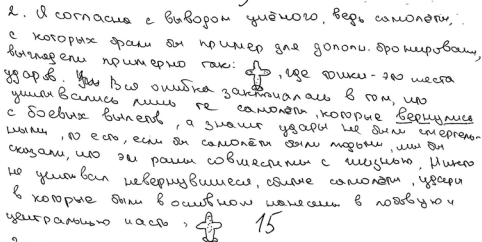 2. Я согласна с выводом учёного, ведь самолёты,
с которых брали бы пример для дополн. бронирования,
выглядели примерно так: , где точки - это места
ударов. Вся ошибка заключалась в том, что
учитывались лишь те самолёты, которые вернулись
с боевых вылетов, а значит удары не были смертель-
ными, то есть, если бы самолёты были людьми, мы бы
сказали, что эти раны совместимы с жизнью. Никто
не учитывал невернувшиеся, сбитые самолёты, удары
в которые были в основном нанесены в лобовую и
центральную часть, 15